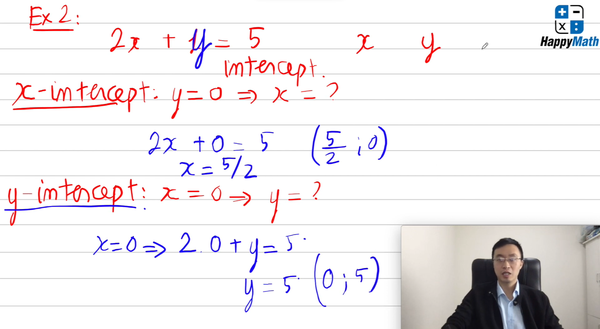 Ex 2:
HappyMath
2x + y = 5 x y
intercept.
x-intercept: y=0 ⇒ x = ?
2x + 0 = 5 (5/2 ; 0)
x = 5/2
y-intercept: x = 0 ⇒ y = ?
x=0 ⇒ 2.0 + y = 5.
y = 5. (0 ; 5)